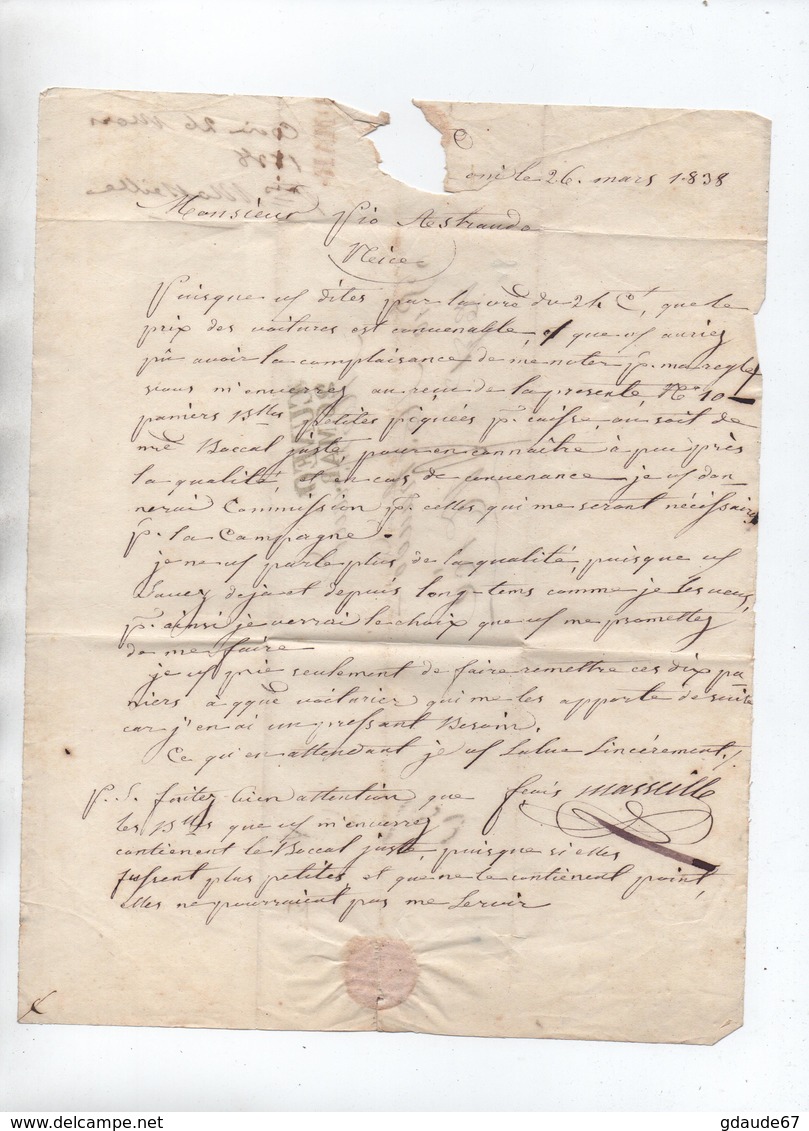 oni le 26. mars 1838
Monsieur Pio Astraudo
Nice
Puisque vs dites par la vre du 24 Ct, que le
prix des voitures est convenable, et que vs auriez
pû avoir la complaisance de me noter pr. ma regle
vous m'enverrez au reçu de la presente, No. 10
paniers Blles petites piquées pr. caisse, ou soit de
mre Boccal juste, pour en connaître à peu près
la qualité, et en cas de convenance je vs don-
nerai Commission pr. celles qui me seront nécéssaires
pr. la Campagne.
je ne vs parle plus de la qualité, puisque vs
Savez deja et depuis long-tems comme je les veux,
pr. ainsi je verrai le choix que vs me promettez
de me faire
je vs prie seulement de faire remettre ces dix pa-
niers à qque voiturier qui me les apporte de suite
car j'en ai un pressant Besoin.
Ce qu'en attendant je vs Salue Sincérement.
P. S. faitez bien attention que
les Blles que vs m'enverrez
contienent le Boccal juste, puisque si elles
fussent plus petites, et que ne le contienent point,
elles ne pourraient pas me Servir
delcampe.net
gdaude67